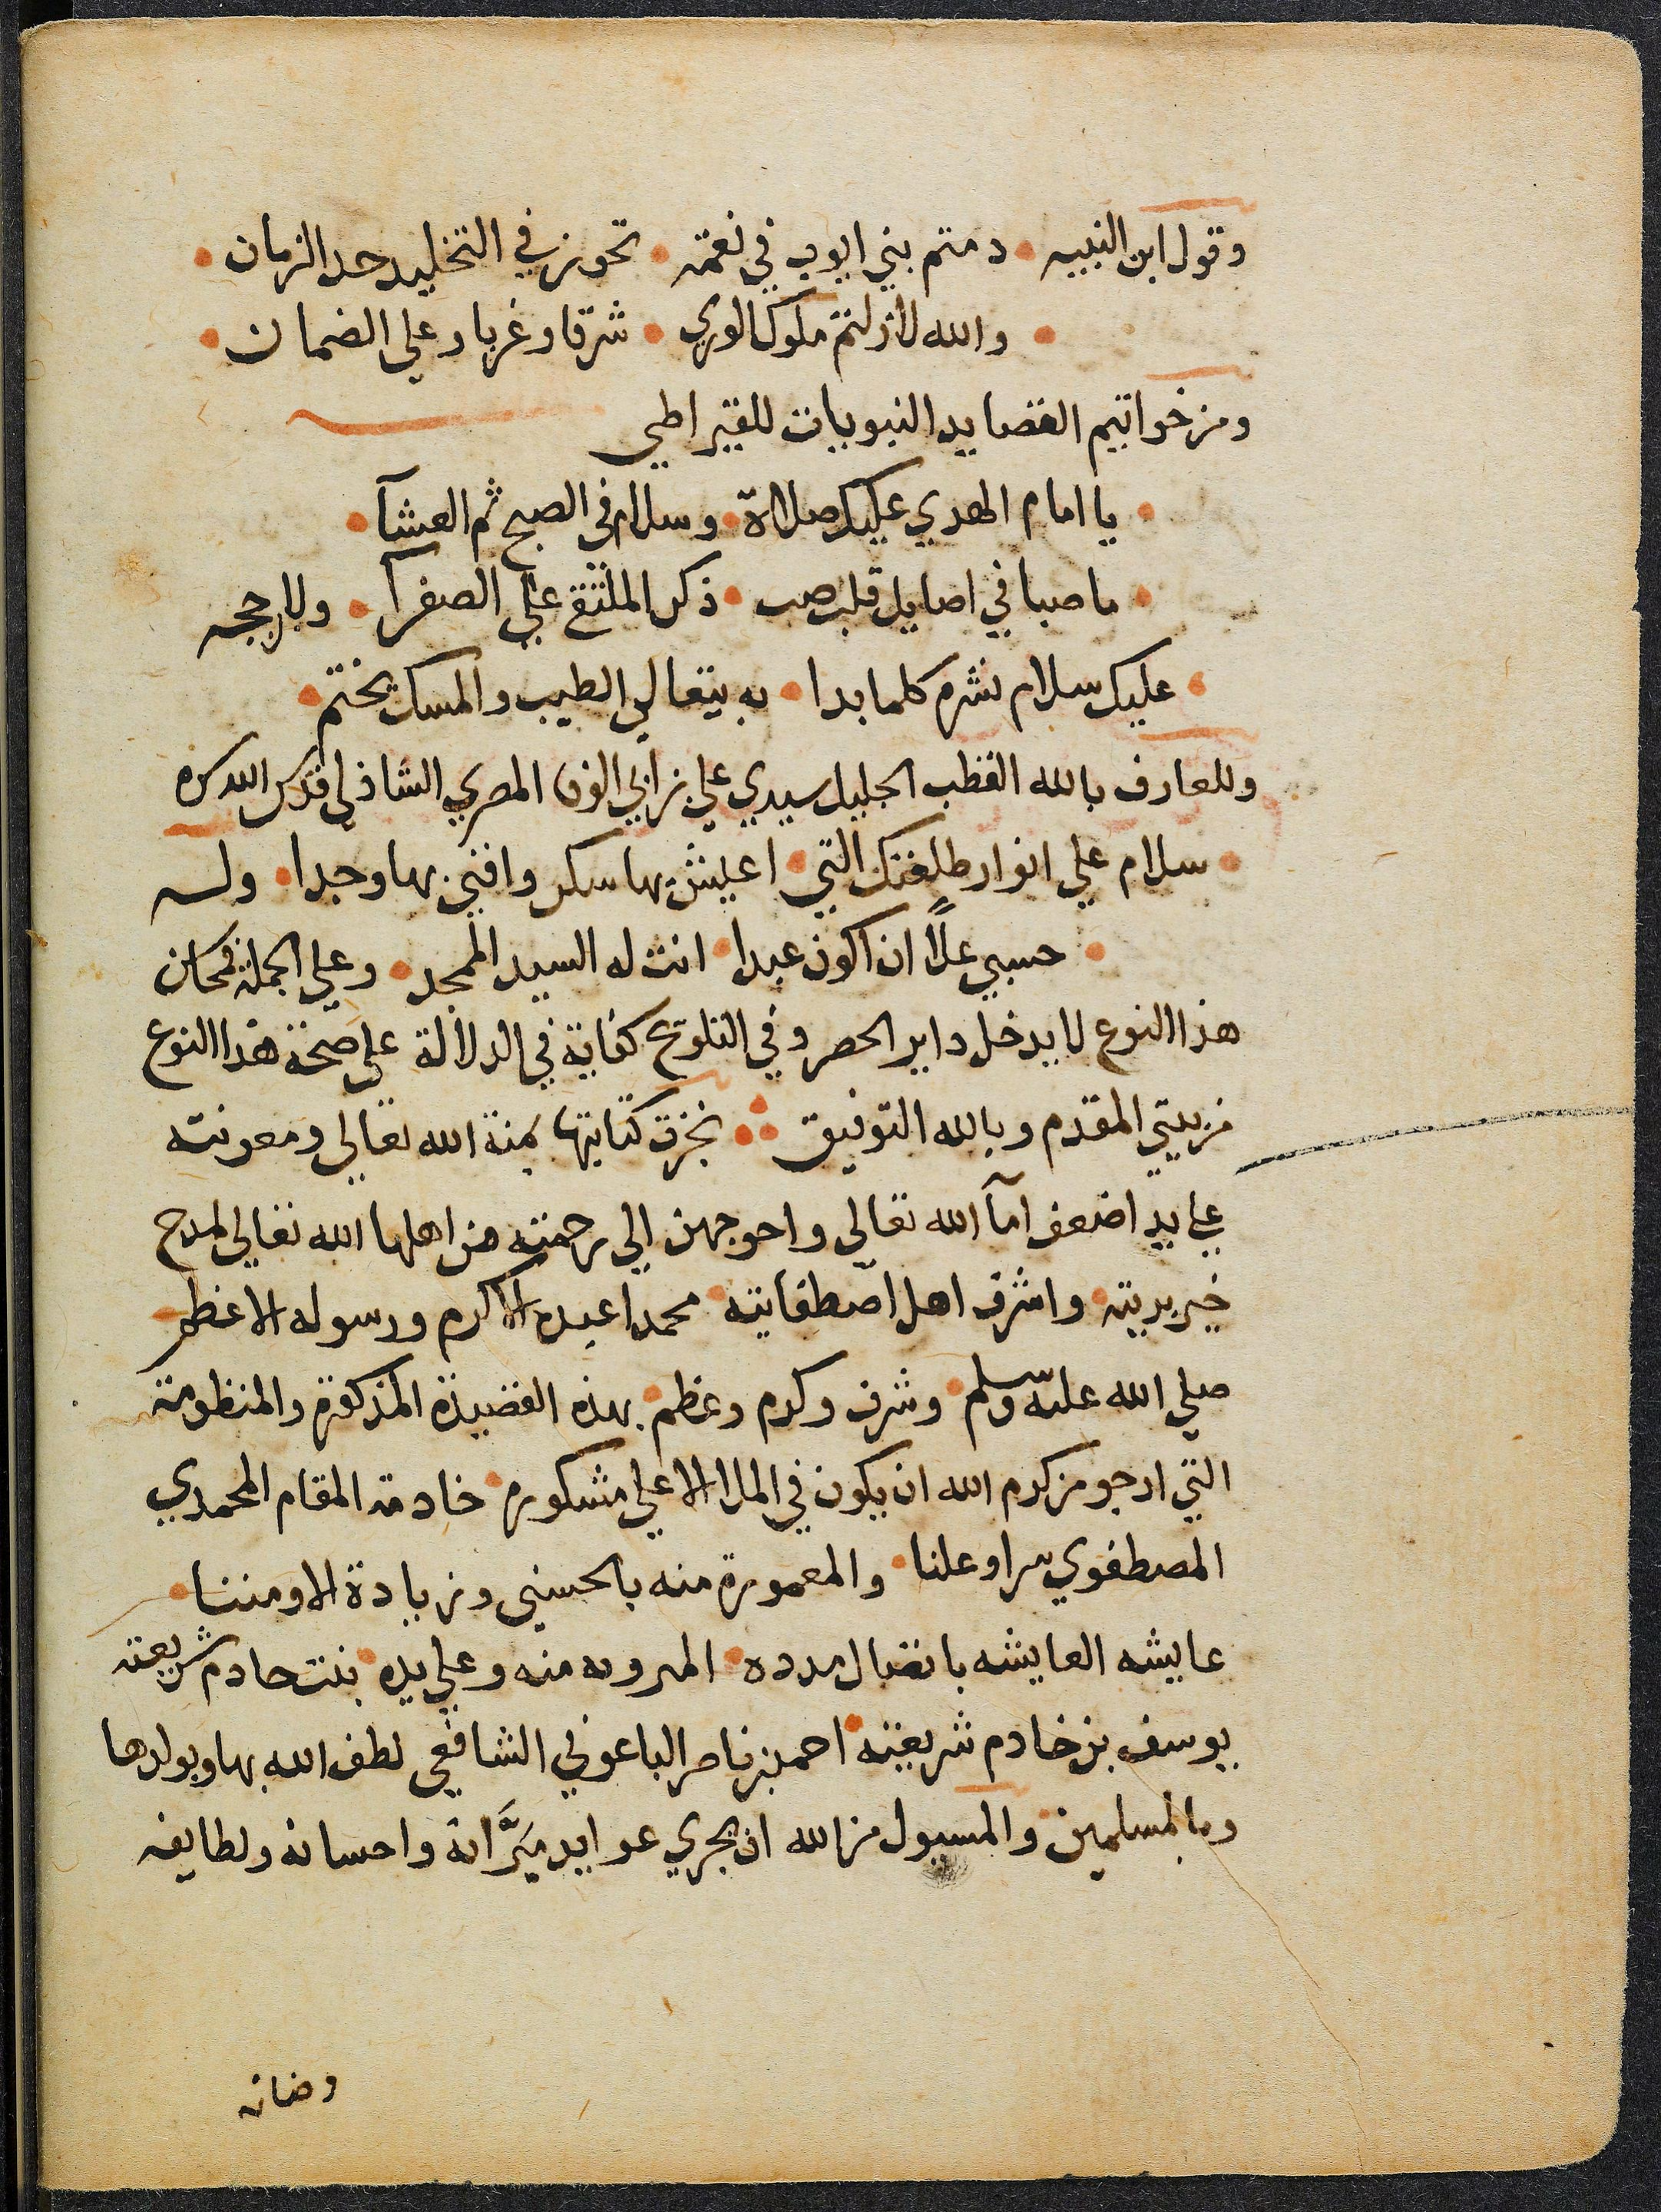 وقول ابن النبيه • دمتم بني ايوب في نعمة • تحوز في التخليد حد الزمان •
• والله لازلتم ملوك الوري • شرقا وغربا وعلي الضمان •
ومن خواتيم القصايد النبويات للقيراطي
• يا امام الهدي عليك صلاة • وسلام في الصبح ثم العشآ •
• ما صبا في اصايل قلب صب • ذكر الملتقي علي الصفرآ • ولابن حجه
• عليك سلام نشره كلما بدا • به يتغالي الطيب والمسك يختم •
وللعارف بالله القطب الجليل سيدي علي بن ابي الوفا المصري الشاذلي قدس الله سره
• سلام علي انوار طلعتك التي • اعيش بها سكر وافني بها وجدا • وله
• حسبي علاً ان اكون عبدا • انت له السيد الممجد • وعلي الجملة فمحاسن
هذا النوع لا يدخل داير الحصر وفي التلويح كفاية في الدلالة علي صحة هذا النوع
من بيتي المقدم وبالله التوفيق ∴ نجزت كتابتها بمنة الله تعالي ومعونته
علي يد اضعف امآ الله تعالي واحوجهن الي رحمته من اهلها الله تعالي لمدح
خير بريته • واشرف اهل اصطفايته • محمدا عبده الاكرم ورسوله الاعظم
صلي الله عليه وسلم • وشرف وكرم وعظم • بهذه القصيدة المذكورة والمنظومة
التي ارجو من كرم الله ان يكون في الملا الاعلي مشكوره • خادمة المقام المحمدي
المصطفوي سرا وعلنا • والمعمورة منه بالحسني وزيادة الاومننا •
عايشه العايشه باتصال مدده • المروية منه وعلي يده • بنت خادم شريعته
يوسف بن خادم شريعته • احمد بن ناصر الباعوني الشافعي لطف الله بها وبولدها
وبالمسلمين • والمسيول من الله ان يجري عوايد مبرَّاته واحسانه ولطايفه